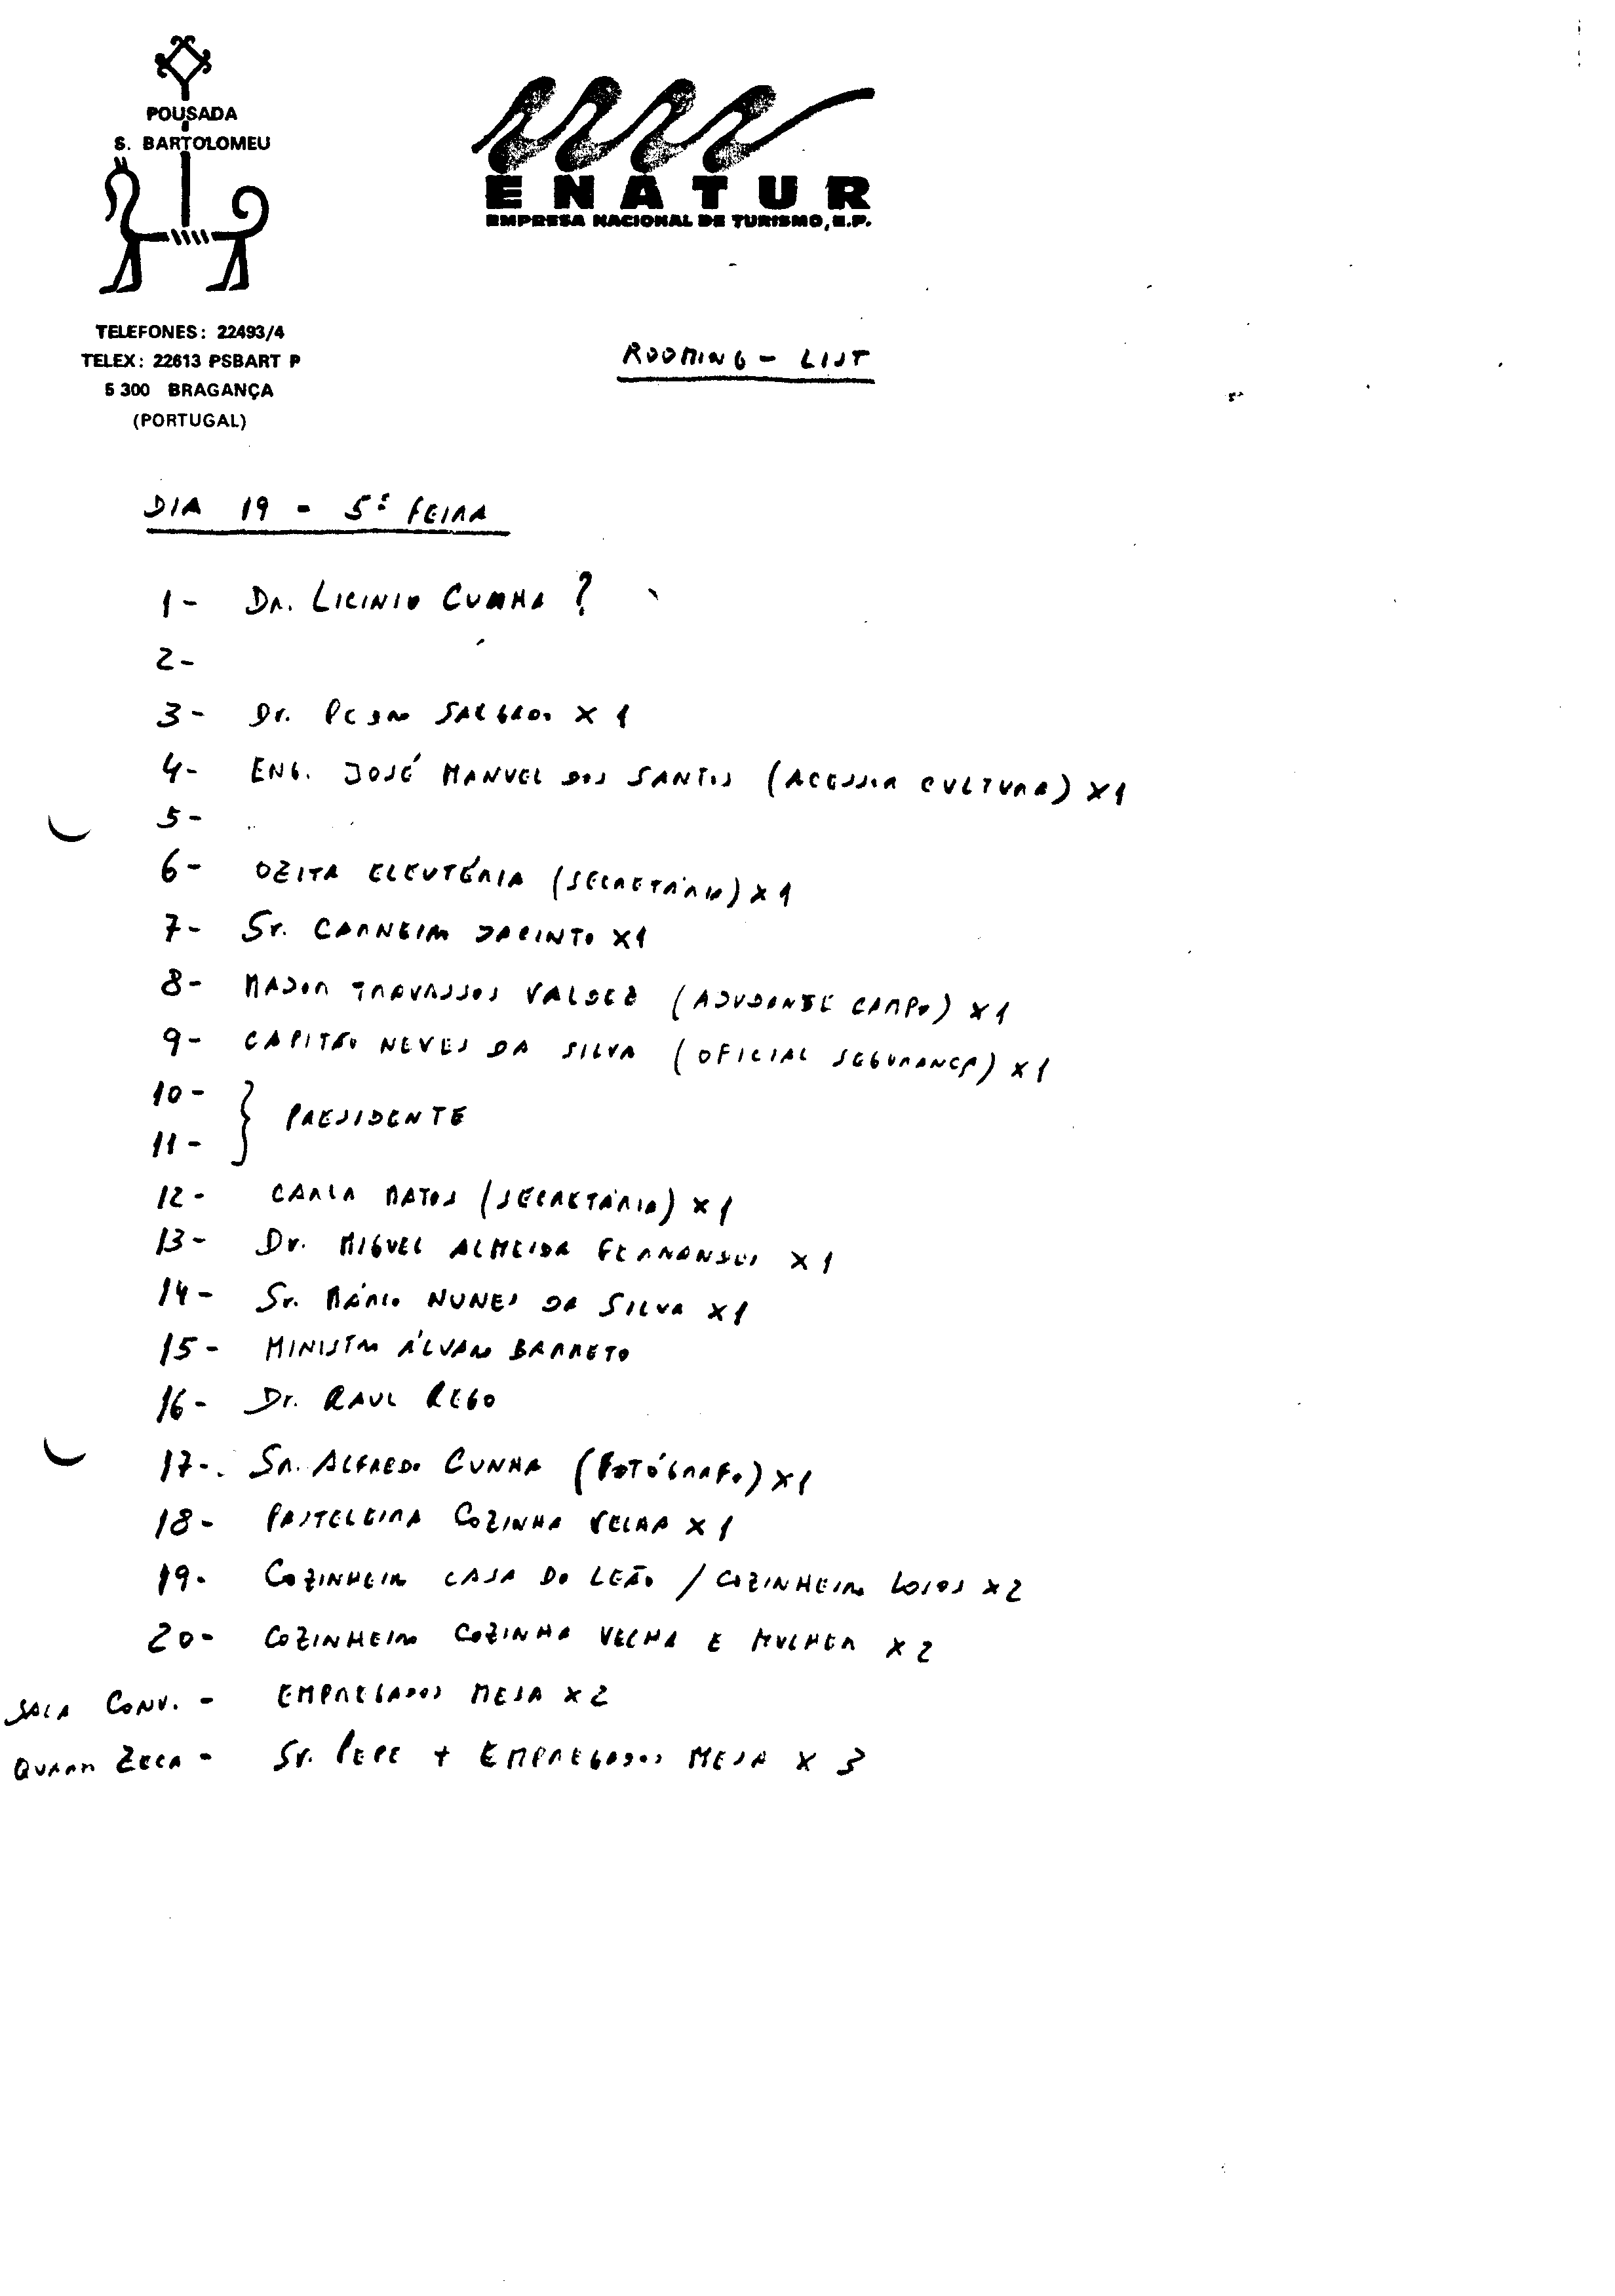 POUSADA
S. BARTOLOMEU
ENATUR
EMPRESA NACIONAL DE TURISMO, E.P.
TELEFONES: 22493/4
TELEX: 22613 PSBART P
5 300 BRAGANÇA
(PORTUGAL)
ROOMING - LIST
DIA 19 - 5ª FEIRA
1- DR. LICINIO CUNHA ?
2-
3- Dr. PEDRO SALGADO X 1
4- ENG. JOSÉ MANUEL DOS SANTOS (ACESSOR CULTURA) X 1
5-
6- OZITA ELEUTÉRIA (SECRETÁRIA) X 1
7- Sr. CARNEIRO JACINTO X 1
8- MAJOR TRAVASSOS VALDEZ (AJUDANTE CAMPO) X 1
9- CAPITÃO NEVES DA SILVA (OFICIAL SEGURANÇA) X 1
10- } PRESIDENTE
11-
12- CARLA MATOS (SECRETÁRIA) X 1
13- Dr. MIGUEL ALMEIDA FERNANDES X 1
14- Sr. MÁRIO NUNES DA SILVA X 1
15- MINISTRO ÁLVARO BARRETO
16- Dr. RAUL REGO
17- SR. ALFREDO CUNHA (FOTÓGRAFO) X 1
18- PASTELEIRA COZINHA VELHA X 1
19- COZINHEIRO CASA DO LEÃO / COZINHEIRO LOIOS X 2
20- COZINHEIRO COZINHA VELHA E MULHER X 2
SALA CONV. - EMPREGADOS MESA X 2
QUARTO ZECA - Sr. PEPE + EMPREGADOS MESA X 3